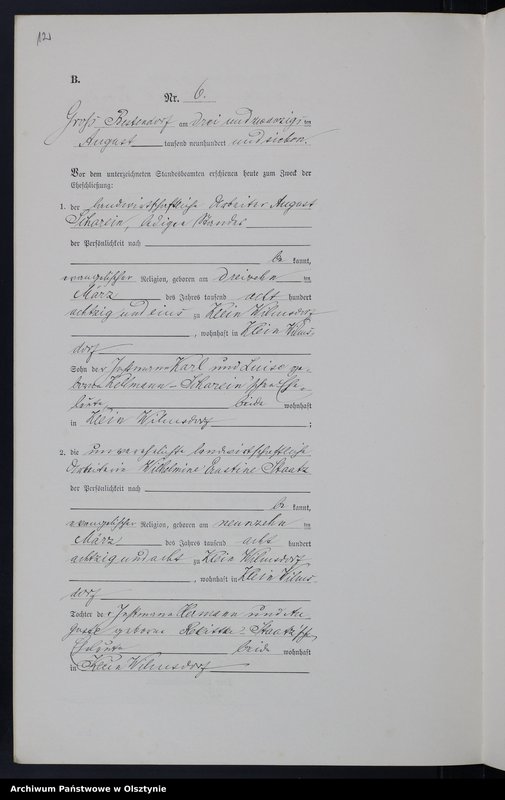 12
B.
Nr. 6.
Groß am drei und zwanzigsten
August tausend neunhundert und sieben.
Vor dem unterzeichneten Standesbeamten erschienen heute zum Zweck der
Eheschließung:
1. der landwirtschaftliche Arbeiter August
Scharein, ledigen Standes
der Persönlichkeit nach
be kannt,
evangelischer Religion, geboren am dreizehn ten
März des Jahres tausend acht hundert
achtzig und eins zu Klein Wilmsdorf
, wohnhaft in Klein Wilms-
dorf
Sohn der Karl und Luise ge-
borene Kellmann-Scharein'schen Ehe-
leute beide wohnhaft
in Klein Wilmsdorf ;
2. die unverehelichte landwirtschaftliche
Arbeiterin Wilhelmine Ernstine Staats
der Persönlichkeit nach
be kannt,
evangelischer Religion, geboren am neunzehn ten
März des Jahres tausend acht hundert
achtzig und acht zu Klein Wilmsdorf
, wohnhaft in Klein Wilms-
dorf
Tochter der und Au-
guste geborene
Eheleute beide wohnhaft
in Klein Wilmsdorf
Archiwum Państwowe w Olsztynie